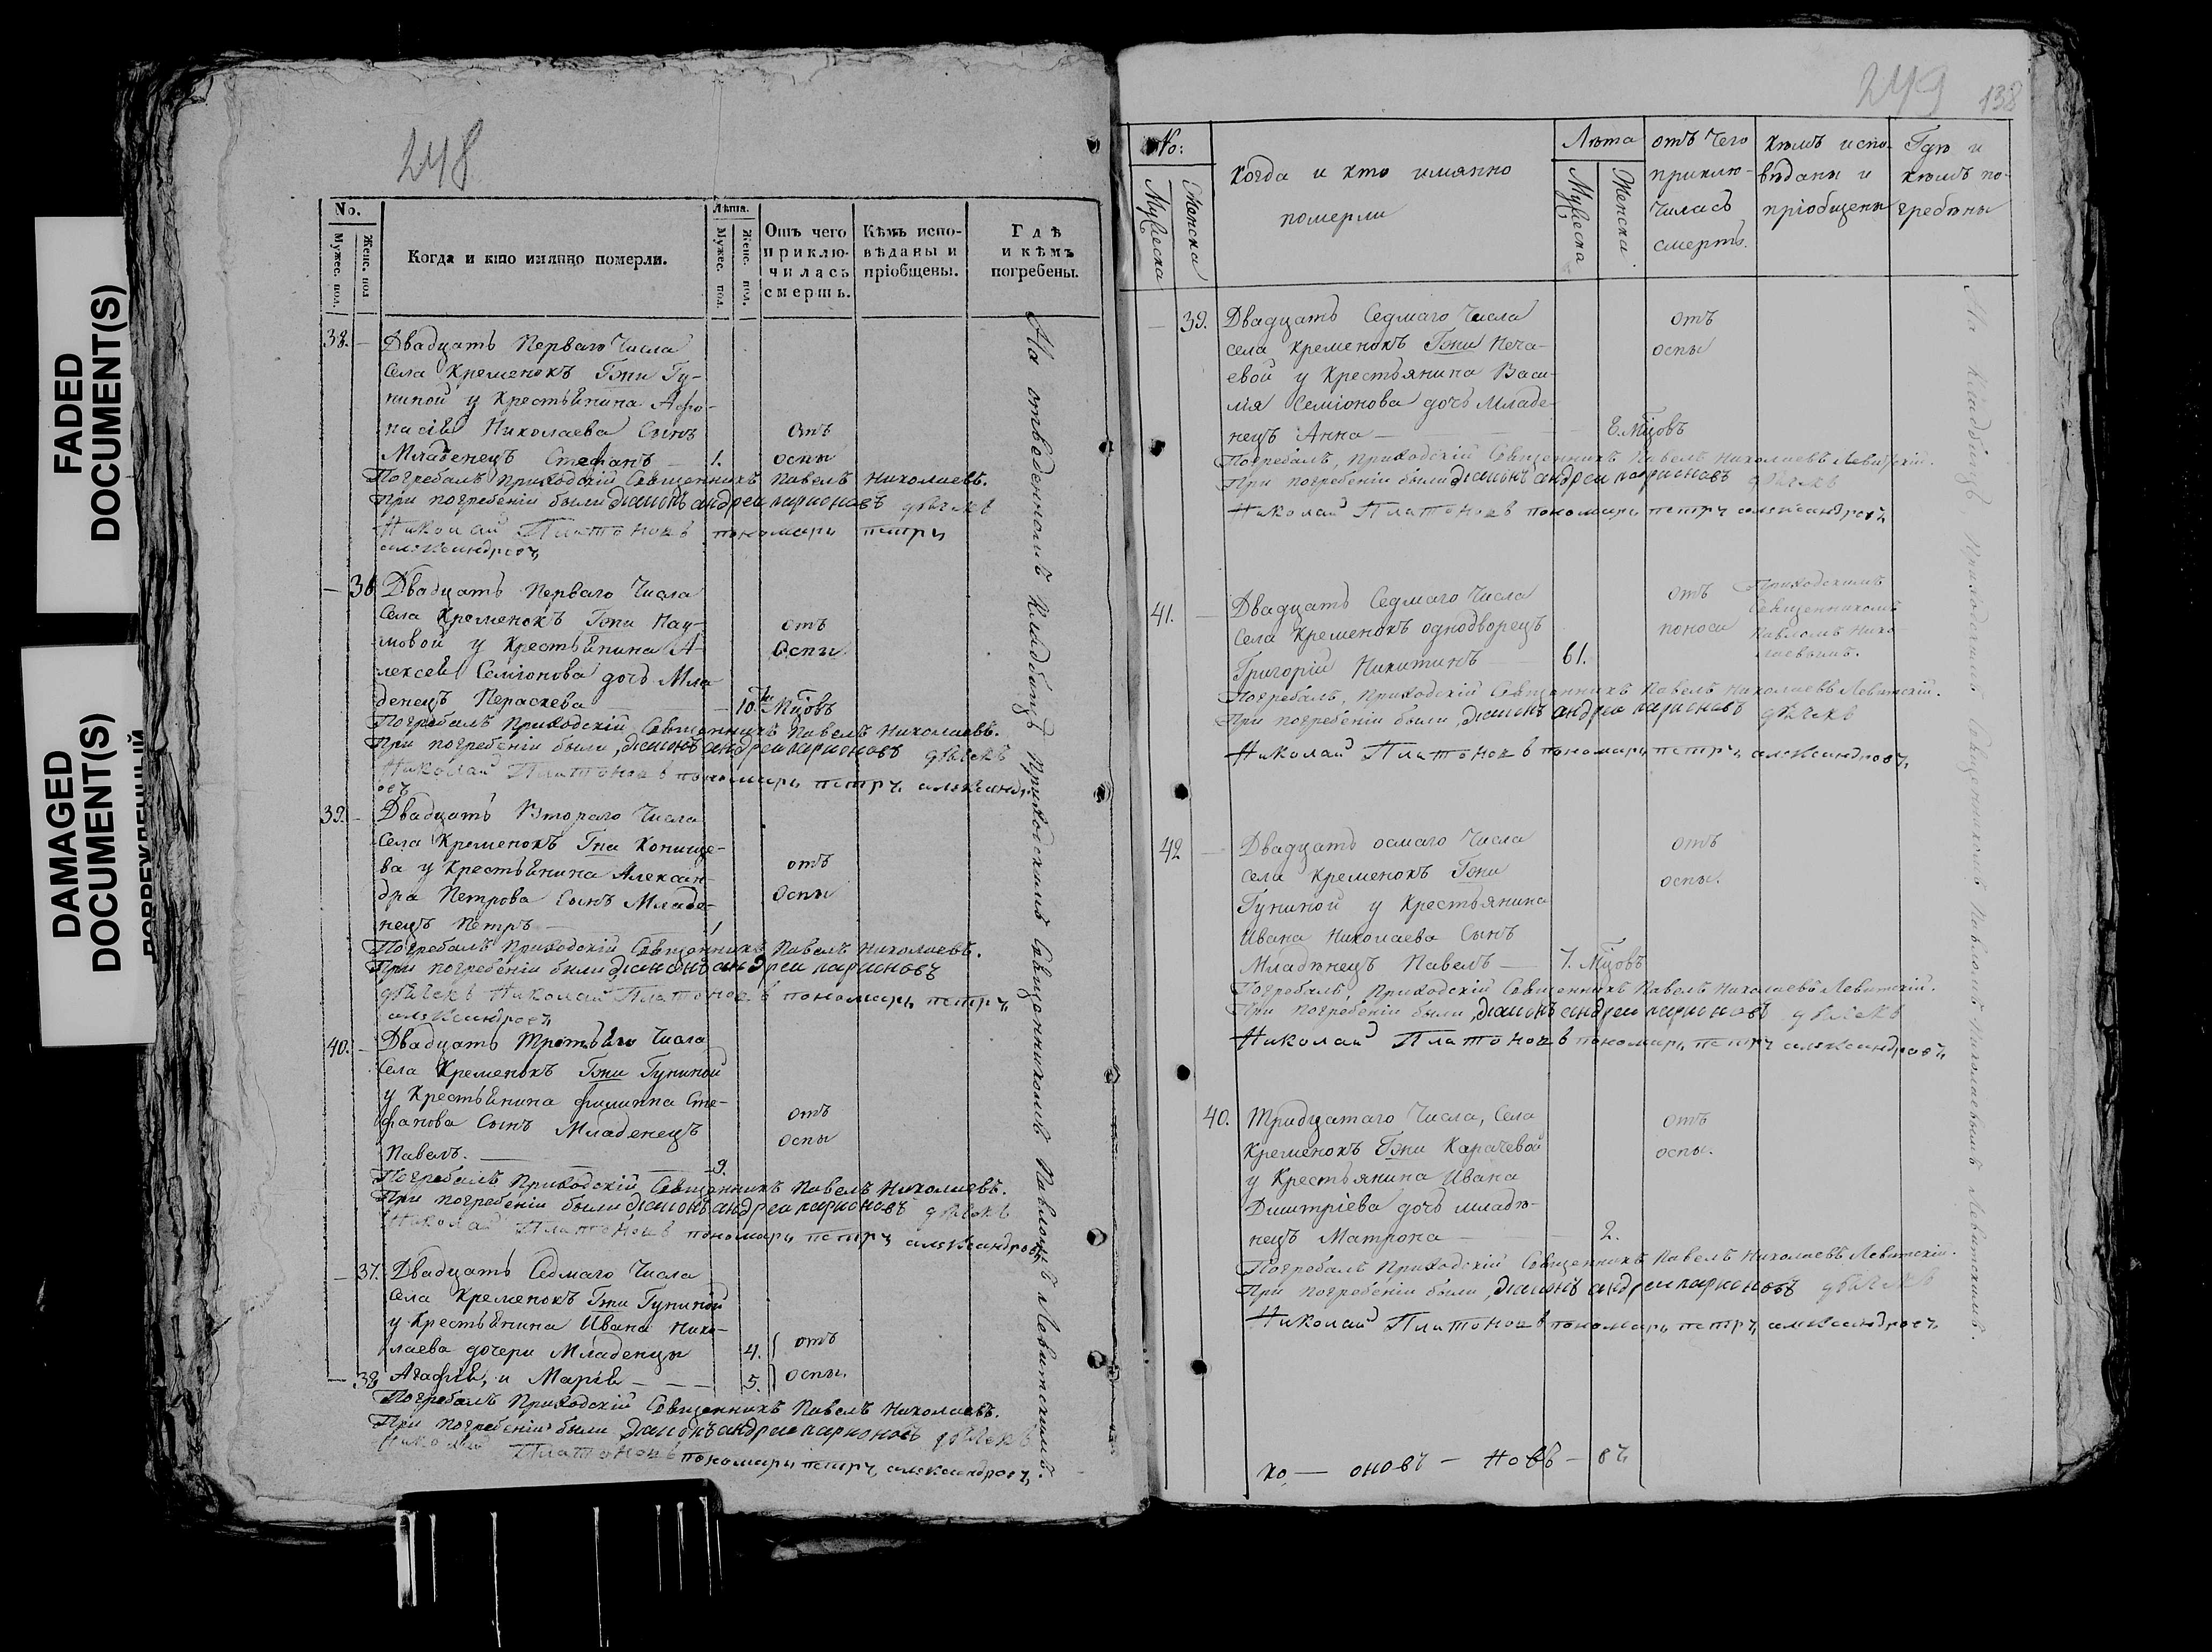 FADED
DOCUMENT(S)
DAMAGED
DOCUMENT(S)
248
No.
Мужес. пол.
Женс. пол
Когда и кто имянно померли.
Лѣта.
Мужес. пол.
Женс. пол.
Отъ чего
приклю-
чилась
смерть.
Кѣмъ испо-
вѣданы и
пріобщены.
Гдѣ
и кѣмъ
погребены.
38. – Двадцать Перваго Числа
Села Кременокъ Гжи Гу-
ниной у Крестьянина Афо-
насія Николаева Сынъ отъ
Младенецъ Стефанъ – 1. оспы
Погребалъ Приходскій Священникъ Павелъ Николаевъ.
При погребеніи были Диаконъ андреи ларионовъ дьячекъ
Николай Платоновъ пономарь петръ
александровъ
– 36 Двадцать Перваго Числа
Села Кременокъ Гжи Нау-
мовой у Крестьянина А-
лексея Семіонова дочь Мла
денецъ Параскева – 10. Мцовъ
отъ
Оспы
Погребалъ Приходскій Священникъ Павелъ Николаевъ.
При погребеніи были, диаконъ андреи ларионовъ дьячекъ
Николай Платоновъ пономарь петръ александр
овъ
39. – Двадцать Втораго Числа
Села Кременокъ Гна Конище-
ва у Крестьянина Алексан-
дра Петрова Сынъ Младе-
нецъ Петръ – 1
отъ
Оспы
Погребалъ Приходскій Священникъ Павелъ Николаевъ.
При погребеніи были диаконъ андреи ларионовъ
дьячекъ Николай Платоновъ пономарь петръ
александровъ
40. – Двадцать Третьяго Числа
Села Кременокъ Гжи Гуниной
у Крестьянина Филиппа Сте-
фанова Сынъ Младенецъ
Павелъ. – 9.
отъ
оспы
Погребалъ Приходскій Священникъ Павелъ Николаевъ.
При погребеніи были, диаконъ андреи ларионовъ дьячекъ
Николай Платоновъ пономарь петръ александровъ
– 37. Двадцать Седмаго Числа
Села Кременокъ Гжи Гуниной
у Крестьянина Ивана Нико-
лаева дочери Младенцы 4. отъ
– 38 Агафія, и Марія – 5. оспы.
Погребалъ Приходскій Священникъ Павелъ Николаевъ.
При погребеніи были диаконъ андреи ларионовъ дьячекъ
Николай Платоновъ пономарь петръ александровъ
На отведенномъ Кладбищѣ Приходскимъ Священникомъ Павломъ Левитскимъ.
249 138
No:
Мужеска
Женска
Когда и кто имянно
померли
Лѣта
Мужеска
Женска
отъ чего
приклю-
чилась
смерть.
кѣмъ испо-
вѣданы и
пріобщены
Гдѣ и
кѣмъ по-
гребены
– 39. Двадцать Седмаго Числа отъ
села Кременокъ Гжи Печа- оспы
евой у Крестьянина Васи-
лія Семіонова дочь Младе-
нецъ Анна – 8. Мцовъ
Погребалъ, Приходскій Священникъ Павелъ Николаевъ Левитскій.
При погребеніи были диаконъ андреи ларионовъ дьячекъ
Николай Платоновъ пономарь петръ александровъ
41. – Двадцать Седмаго Числа
Села Кременокъ однодворецъ
Григорій Никитинъ – 61.
отъ
поноса
Приходскимъ
Священникомъ
Павломъ Нико
лаевымъ.
Погребалъ, Приходскій Священникъ Павелъ Николаевъ Левитскій.
При погребеніи были, диаконъ андреи ларионовъ дьячекъ
Николай Платоновъ пономарь петръ александровъ
42 – Двадцать осмаго Числа отъ
села Кременокъ Гжи оспы.
Гуниной у Крестьянина
Ивана Николаева Сынъ
Младенецъ Павелъ – 7. Мцовъ
Погребалъ, Приходскій Священникъ Павелъ Николаевъ Левитскій.
При погребеніи были, диаконъ андреи ларионовъ дьячекъ
Николай Платоновъ пономарь петръ александровъ
40. Тридцатаго Числа, Села отъ
Кременокъ Гжи Карачевой оспы.
у Крестьянина Ивана
Димитріева дочь младе-
нецъ Матрона – 2.
Погребалъ Приходскій Священникъ Павелъ Николаевъ Левитскій.
При погребеніи были, диаконъ андреи ларионовъ дьячекъ
Николай Платоновъ пономарь петръ александровъ
На кладбищѣ Приходскимъ Священникомъ Павломъ Николаевымъ Левитскимъ.
ко – оновъ – новъ – въ